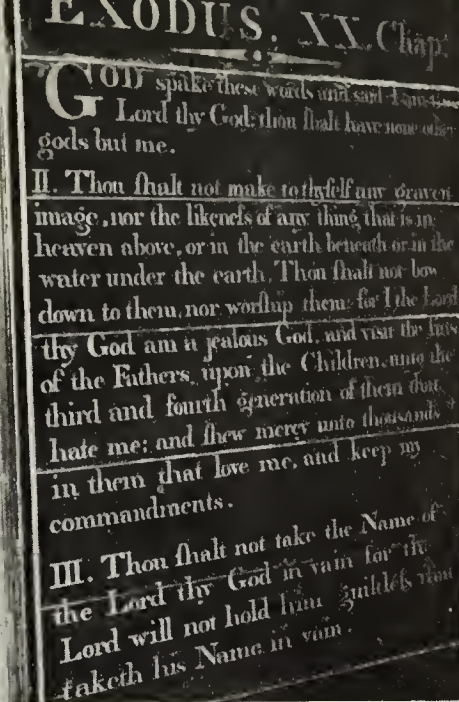 EXODUS. XX. Chap:
GOD spake these words and said I am the
Lord thy God: thou ſhalt have none other
gods but me.
II. Thou ſhalt not make to thyſelf any graven
image, nor the likeneſs of any thing that is in
heaven above, or in the earth beneath or in the
water under the earth, Thou ſhalt not bow
down to them, nor worſhip them: for I the Lord
thy God am a jealous God, and viſit the ſins
of the Fathers, upon the Children, unto the
third and fourth generation of them that
hate me: and ſhew mercy unto thouſands
in them that love me, and keep my
commandments.
III. Thou ſhalt not take the Name of
the Lord thy God in vain for the
Lord will not hold him guiltleſs that
taketh his Name in vain.